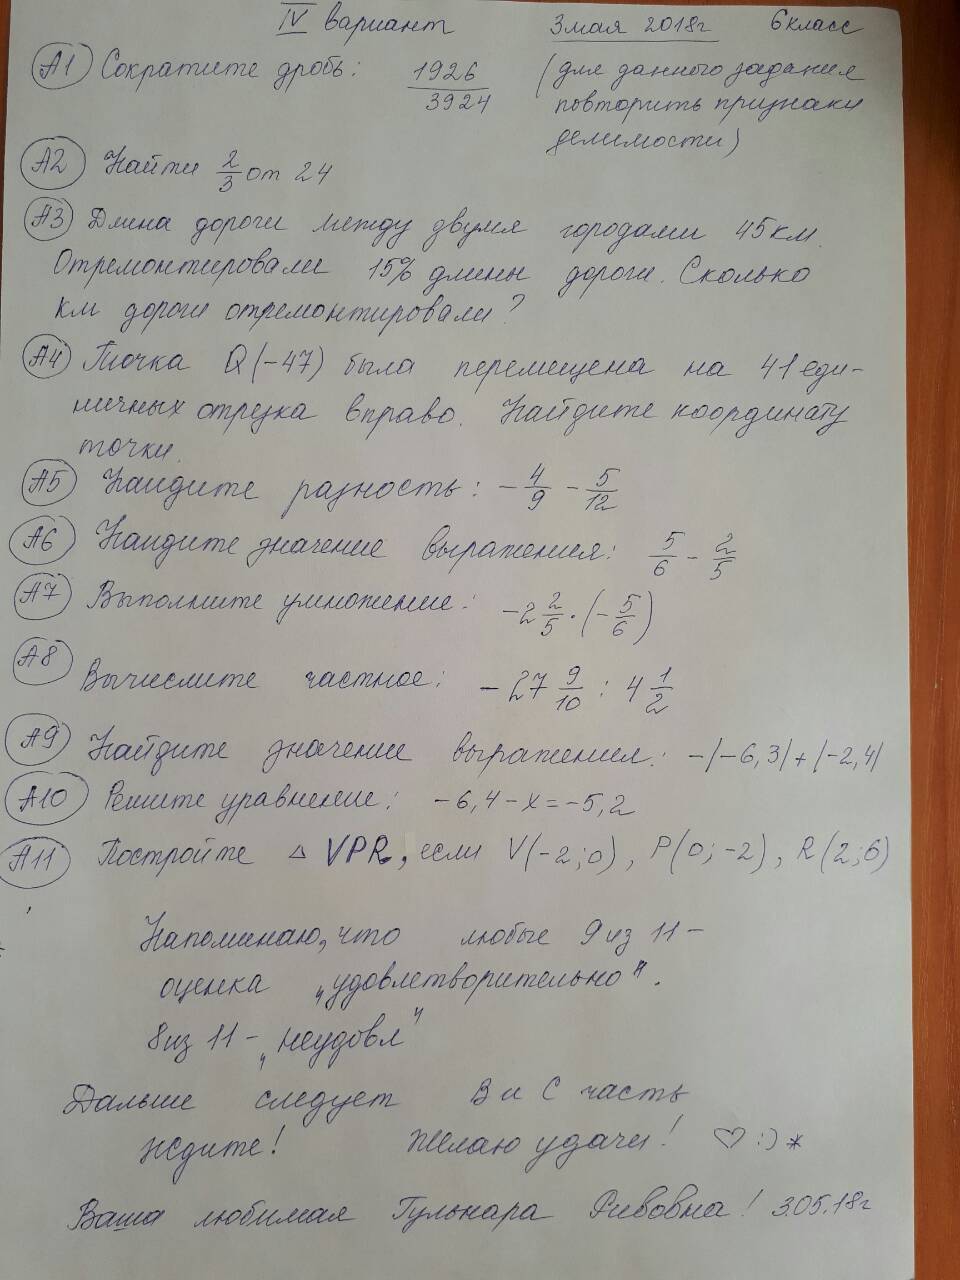 IV вариант 3 мая 2018г 6 класс
А1 Сократите дробь: 1926/3924 (для данного задания
повторить признаки
делимости)
А2 Найти 2/3 от 24
А3 Длина дороги между двумя городами 45 км.
Отремонтировали 15% длины дороги. Сколько
км дороги отремонтировали?
А4 Точка Q(-47) была перемещена на 41 еди-
ничных отрезка вправо. Найдите координату
точки.
А5 Найдите разность: -4/9 - 5/12
А6 Найдите значение выражения: 5/6 - 2/5
А7 Выполните умножение: -2 2/5 · (-5/6)
А8 Вычислите частное: -27 9/10 : 4 1/2
А9 Найдите значение выражения: -|-6,3|+|-2,4|
А10 Решите уравнение: -6,4-x=-5,2
А11 Постройте △ VPR, если V(-2;0), P(0;-2), R(2;6)
Напоминаю, что любые 9 из 11 -
оценка „удовлетворительно".
8 из 11 - „неудовл"
Дальше следует В и С часть
Ждите! Желаю удачи! ♡ :) *
Ваша любимая Гульнара Рифовна! 3.05.18г